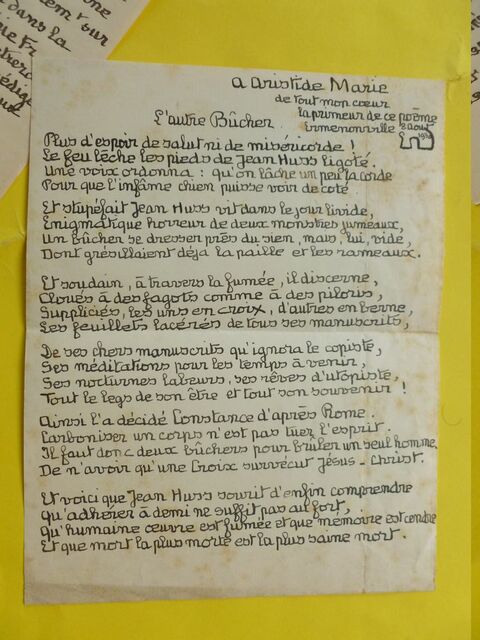 dans la
A Aristide Marie
de tout mon cœur
la primeur de ce poème
Ermenonville 2 aout
L'autre Bûcher
Plus d'espoir de salut ni de miséricorde !
Le feu lèche les pieds de Jean Huss ligoté.
Une voix ordonna : qu'on lâche un peu la corde
Pour que l'infâme chien puisse voir de coté
Et stupéfait Jean Huss vit dans le jour livide,
Enigmatique horreur de deux monstres jumeaux,
Un bûcher se dresser près du sien, mais, lui, vide,
Dont grésillaient déjà la paille et les rameaux.
Et soudain, à travers la fumée, il discerne,
Cloués à des fagots comme à des piloris,
Suppliciés, les uns en croix, d'autres en berne,
Les feuillets lacérés de tous ses manuscrits,
De ses chers manuscrits qu'ignora le copiste,
Ses méditations pour les temps à venir,
Ses nocturnes labeurs, ses rêves d'utopiste,
Tout le legs de son être et tout son souvenir !
Ainsi l'a décidé Constance d'après Rome.
Carboniser un corps n'est pas tuer l'esprit.
Il faut donc deux bûchers pour brûler un seul homme
De n'avoir qu'une Croix survécut Jésus-Christ.
Et voici que Jean Huss sourit d'enfin comprendre
Qu'adhérer à demi ne suffit pas au fort,
Qu'humaine œuvre est fumée et que mémoire est cendre
Et que mort la plus morte est la plus saine mort.